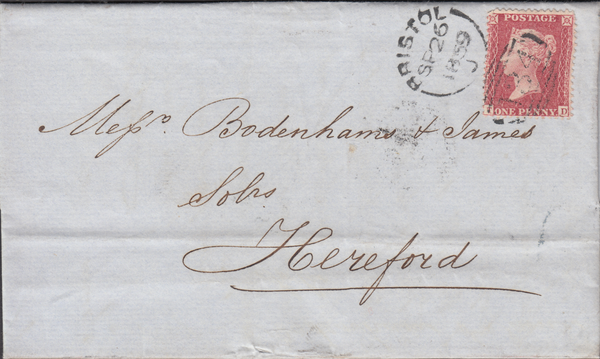 BRISTOL
SP 26
1859
POSTAGE
ONE PENNY
Messrs. Bodenhams & James
Solrs
Hereford